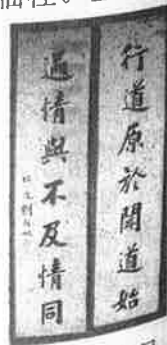 行道原於聞道始
過情與不及情同